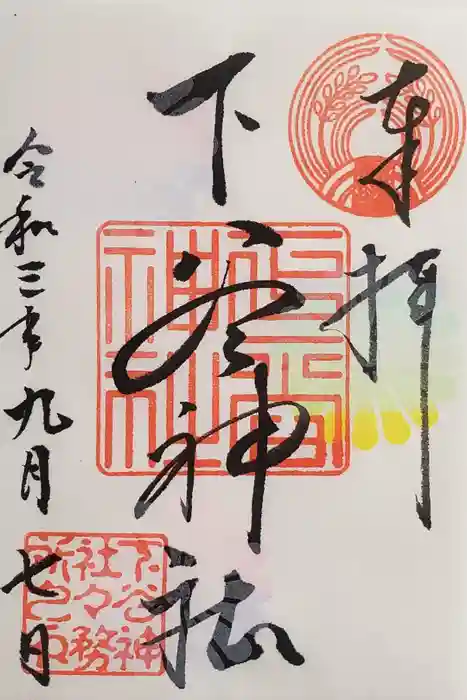 奉拝
下谷神社
令和三年九月
七日
下谷神
社々務
所之印